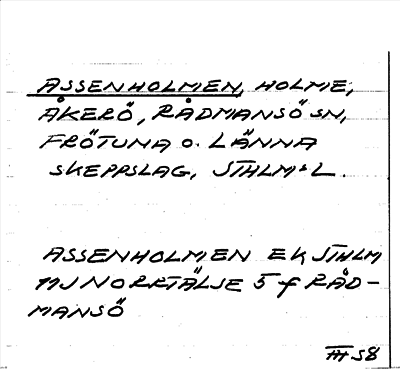 ASSENHOLMEN, HOLME,
ÅKERÖ, RÅDMANSÖ SN,
FRÖTUNA O. LÄNNA
SKEPPSLAG, STHLMS L.
ASSENHOLMEN EK STHLM
11J NORRTÄLJE 5 f RÅD-
MANSÖ
III 58